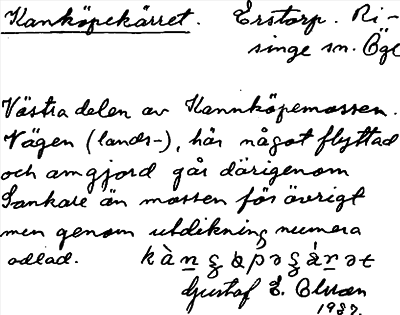 Kanköpekärret. Erstorp. Ri-
singe sn. Ögl
Västra delen av Kannköpemossen.
Vägen (lands-), här något flyttad
och omgjord går därigenom
Sankare än mossen för övrigt
men genom utdikning numera
odlad.
Gustaf E. Olsson
1937.